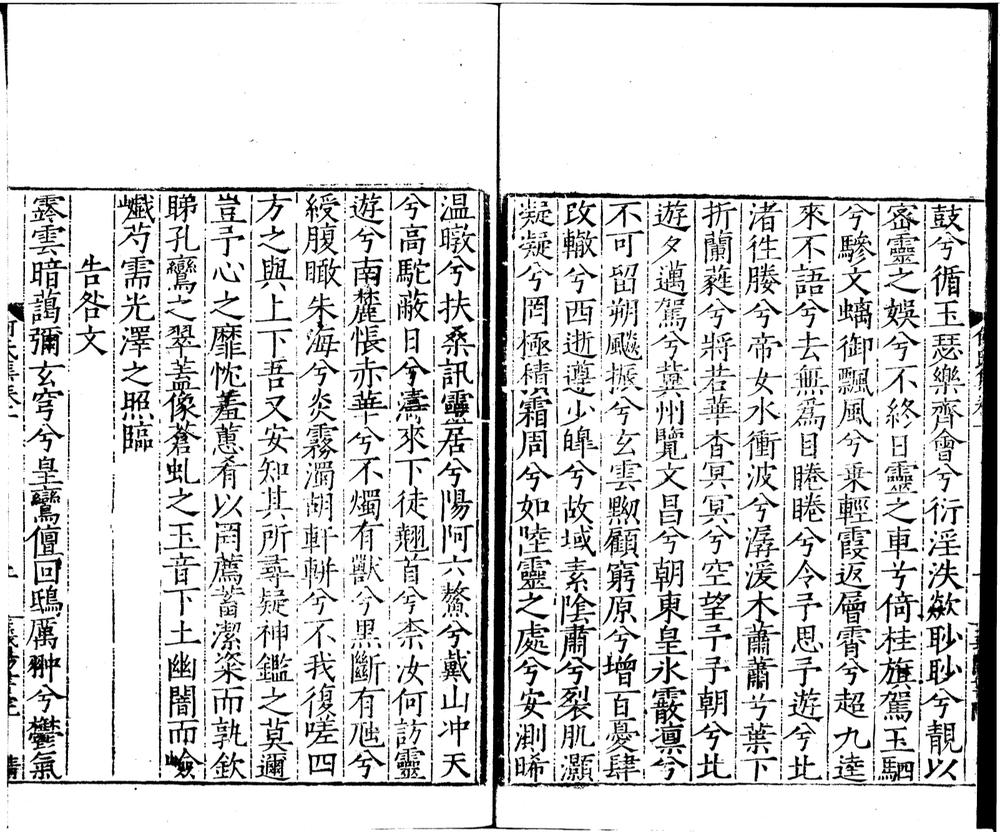 鼓兮循玉瑟樂齊會兮衍淫泆歘眇眇兮靚以
宻靈之娛兮不終日靈之車兮倚桂旗駕玉駟
兮驂文螭御飄風兮乗輕霞返層霄兮超九逵
來不語兮去無爲目睠睠兮令予思予遊兮北
渚徃媵兮帝女水衝波兮潺湲木蕭蕭兮葉下
折蘭蕤兮將若華杳冥冥兮空望予予朝兮北
遊夕邁駕兮冀州覽文昌兮朝東皇氷霰凛兮
不可留朔飈振兮玄雲黝顧窮原兮增百憂肆
改轍兮西逝遵少皡兮故域素陰肅兮裂肌灝
凝凝兮罔極積霜周兮如陸靈之處兮安測晞
温暾兮扶桑訊靈居兮陽阿六鰲兮戴山冲天
兮高駝蔽日兮濤來下徒翹首兮柰汝何訪靈
遊兮南麓悵赤華兮不燭有獸兮黑斷有虺兮
綬腹瞰朱海兮炎霧濁胡軒軿兮不我復嗟四
方之與上下吾又安知其所尋疑神鑑之莫邇
豈予心之靡忱羞蕙肴以罔薦蓄潔粢而孰歆
睇孔鸞之翠蓋像蒼虬之玉音下土幽闇而嶮
巇芍需光澤之照臨
告咎文
霠雲暗藹彌玄穹兮皇鸞儃回鴟厲翀兮鬱氣